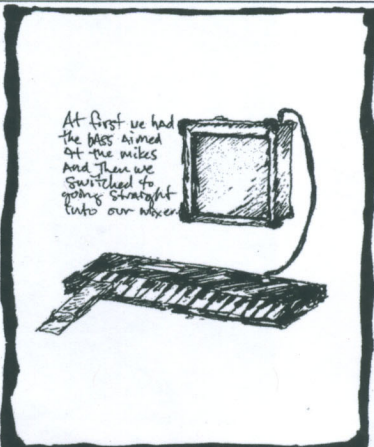 At first we had
the bass aimed
at the mikes
and Then we
switched to
going straight
into our mixer.